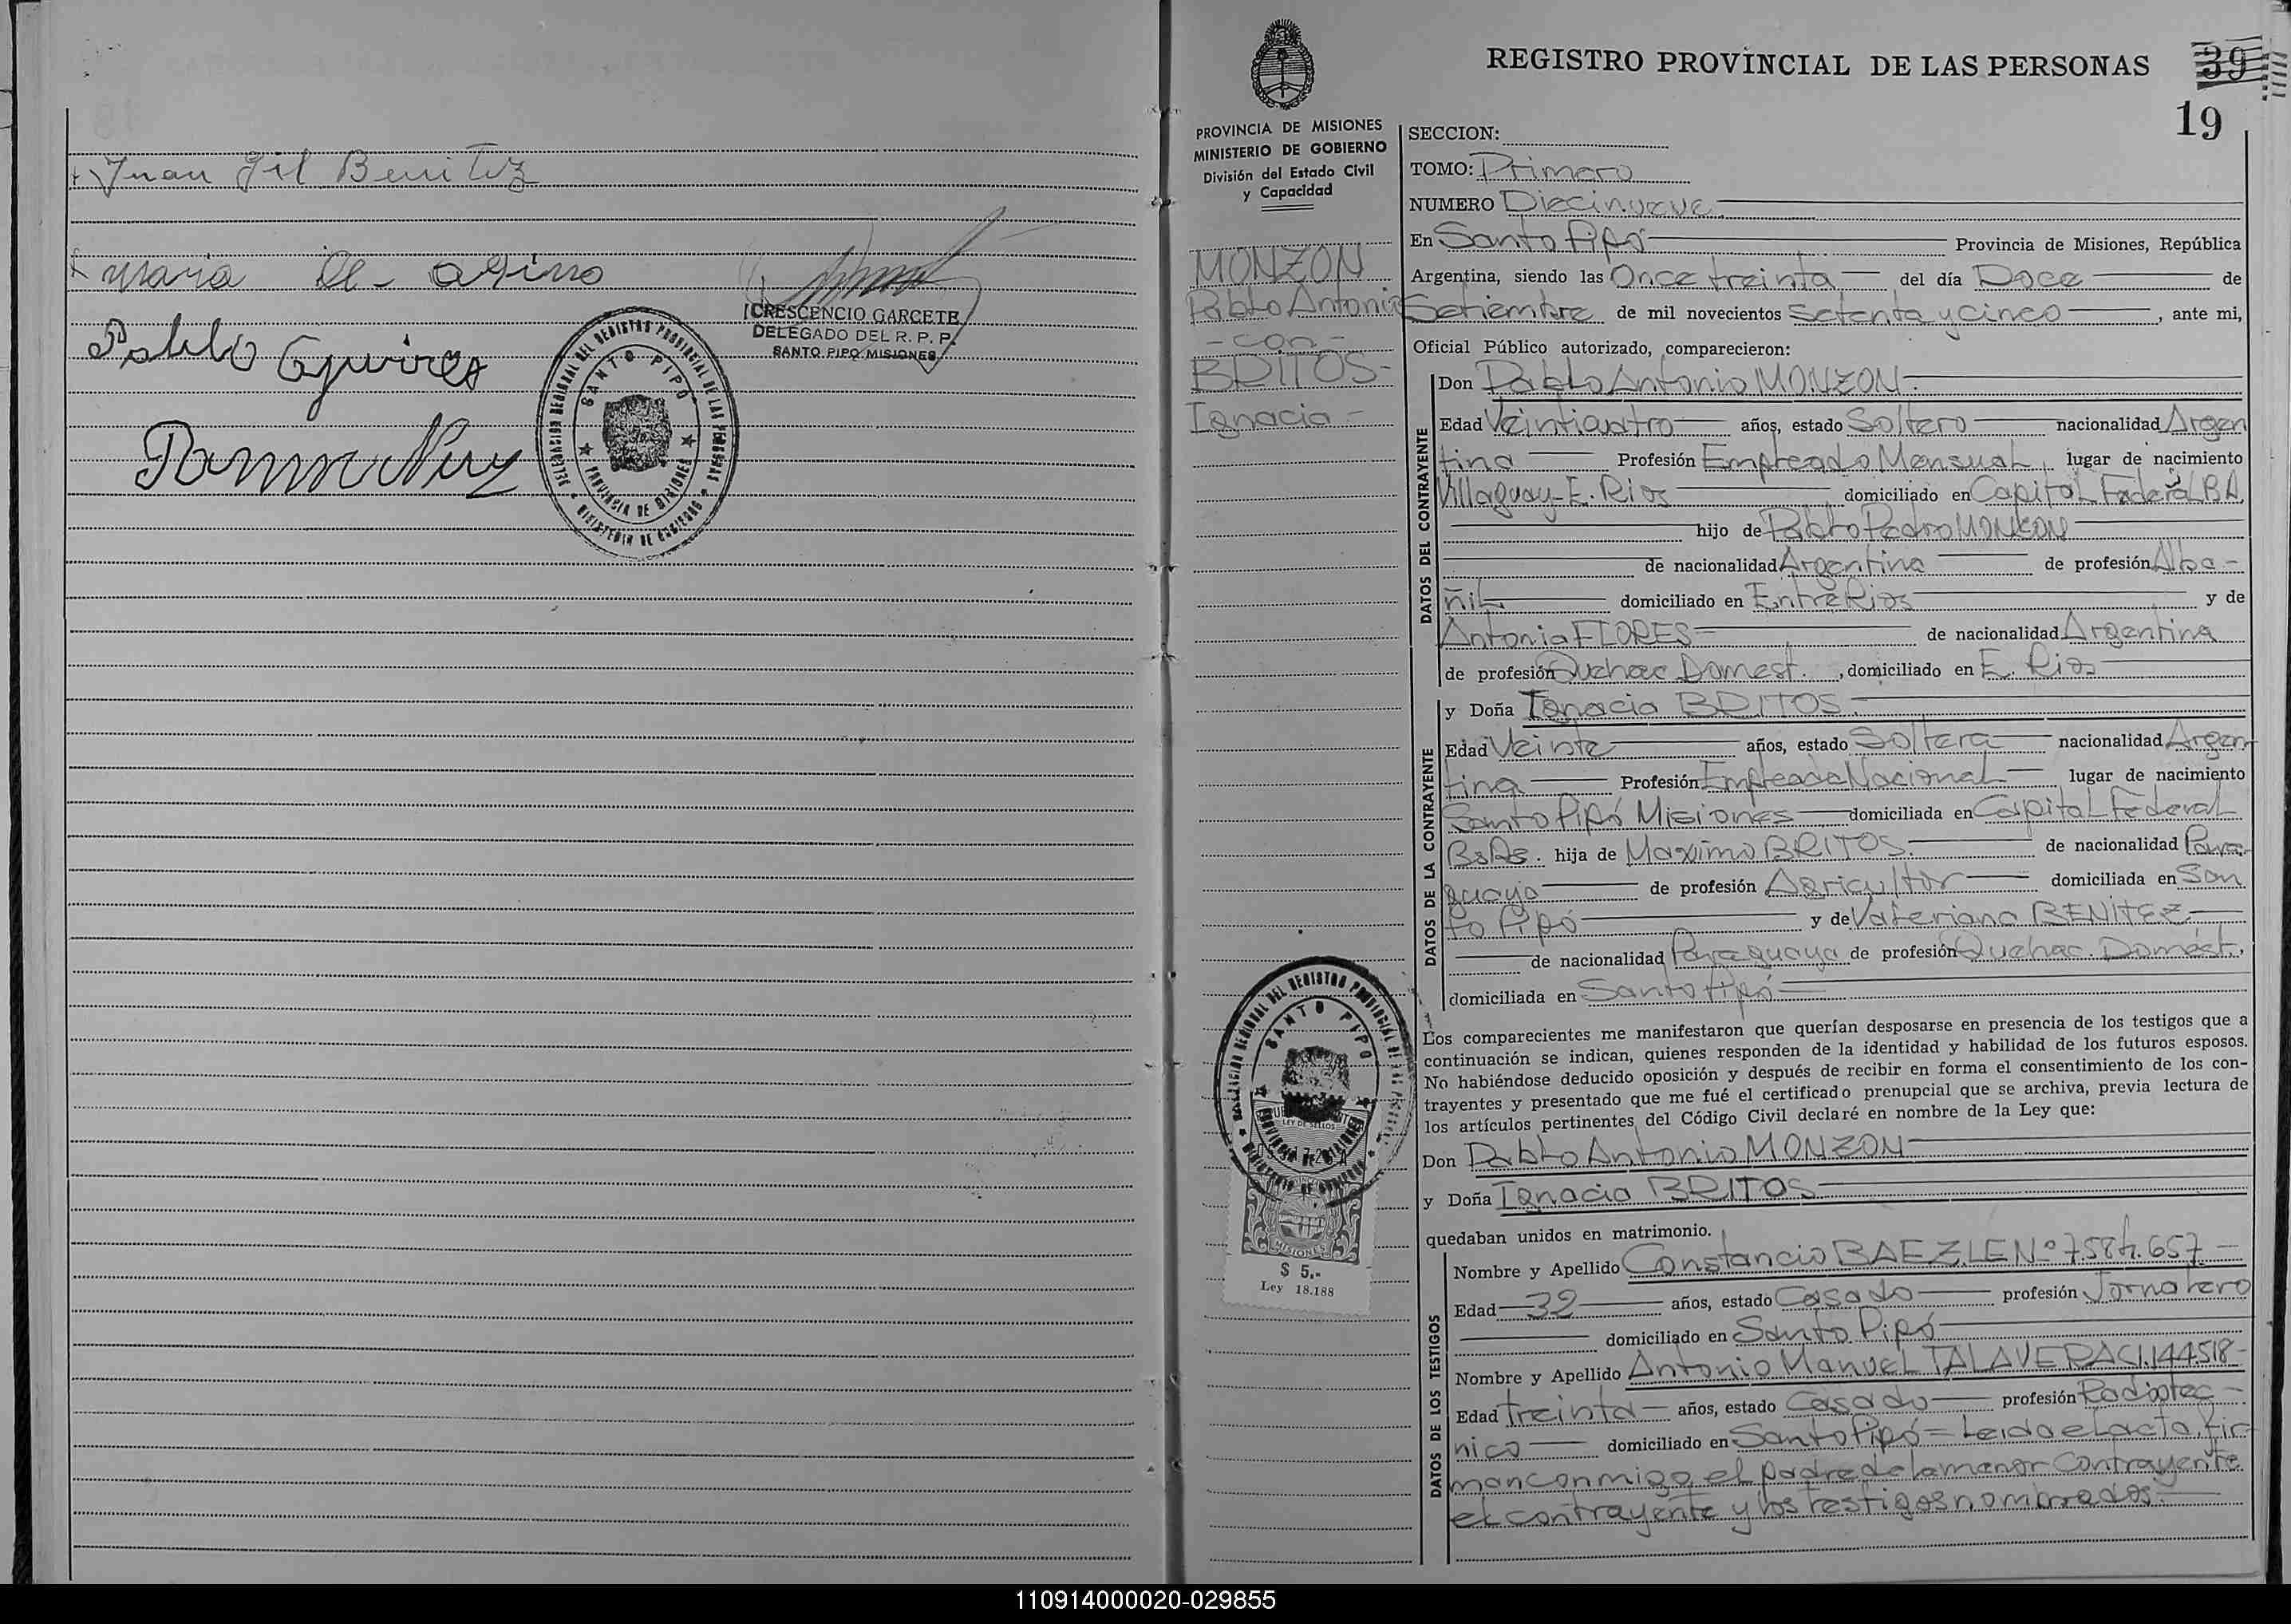 Juan Gil Benitez
Maria de
Pablo
CRESCENCIO GARCETE
DELEGADO DEL R. P. P.
SANTO PIPO MISIONES
DELEGACION REGIONAL DEL REGISTRO PROVINCIAL DE LAS PERSONAS
SANTO PIPO
PROVINCIA DE MISIONES
MINISTERIO DE GOBIERNO
REGISTRO PROVINCIAL DE LAS PERSONAS 39
19
PROVINCIA DE MISIONES
MINISTERIO DE GOBIERNO
División del Estado Civil
y Capacidad
MONZON
Pablo Antonio
-con-
BRITOS-
Ignacia-
SECCION:
TOMO: Primero
NUMERO Diecinueve
En Santo Pipó Provincia de Misiones, República
Argentina, siendo las Once treinta del día Doce de
Setiembre de mil novecientos Setenta y cinco, ante mi,
Oficial Público autorizado, comparecieron:
DATOS DEL CONTRAYENTE
Don Pablo Antonio MONZON.
Edad Veintiquatro años, estado Soltero nacionalidad Argen
tina Profesión Empleado Mensual, lugar de nacimiento
Villaguay-E. Rios domiciliado en Capital Federal B.A.
hijo de Pablo Pedro MONZON
de nacionalidad Argentina de profesión Alba-
ñil domiciliado en Entre Rios y de
Antonia FLORES de nacionalidad Argentina
de profesión Quehac Domest., domiciliado en E. Rios
DATOS DE LA CONTRAYENTE
y Doña Ignacia BRITOS.
Edad Veinte años, estado Soltera nacionalidad Argen
tina Profesión Empleada Nacional lugar de nacimiento
Santo Pipó Misiones domiciliada en Capital Federal
Bs As. hija de Maximo BRITOS. de nacionalidad Para-
guaya de profesión Agricultor domiciliada en San
to Pipó y de Valeriana BENITEZ
de nacionalidad Paraguaya de profesión Quehac. Domést.,
domiciliada en Santo Pipó
Los comparecientes me manifestaron que querían desposarse en presencia de los testigos que a
continuación se indican, quienes responden de la identidad y habilidad de los futuros esposos.
No habiéndose deducido oposición y después de recibir en forma el consentimiento de los con-
trayentes y presentado que me fué el certificado prenupcial que se archiva, previa lectura de
los artículos pertinentes del Código Civil declaré en nombre de la Ley que:
Don Pablo Antonio MONZON
y Doña Ignacia BRITOS
quedaban unidos en matrimonio.
DATOS DE LOS TESTIGOS
Nombre y Apellido Constancio BAEZ. LE Nº 7.584.657
Edad 32 años, estado Casado profesión Jornalero
domiciliado en Santo Pipó
Nombre y Apellido Antonio Manuel TALAVERA CI. 144.518-
Edad treinta años, estado Casado profesión Radiotec-
nico domiciliado en Santo Pipó = Leida el acta, fir
man conmigo el padre de la menor Contrayente
el contrayente y los testigos nombrados.
DELEGACION REGIONAL DEL REGISTRO PROVINCIAL DE LAS PERSONAS
SANTO PIPO
PROVINCIA DE MISIONES
MINISTERIO DE GOBIERNO
LEY DE SELLOS
MISIONES
$ 5.-
Ley 18.188
110914000020-029855